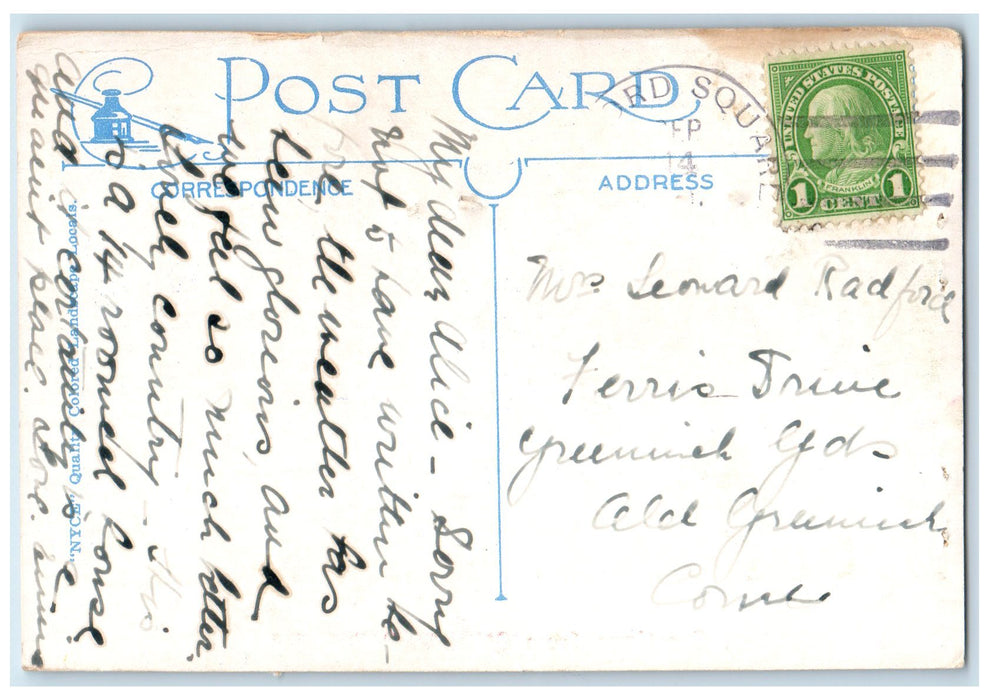 POST CARD
CORRESPONDENCE
ADDRESS
RD SQUARE
SEP
14
UNITED STATES POSTAGE
FRANKLIN
1 CENT 1
My dear Alice - Sorry
not to have written be-
fore, the weather has
been glorious, and
we feel so much better.
lovely country - this
is a 14 roomed house
and
quaint place. Love.
Mrs Leonard Radford
Ferris Drive
Greenwich Gds
Old Greenwich
Conn
"NYCE" Quality Colored Landscape Locals.